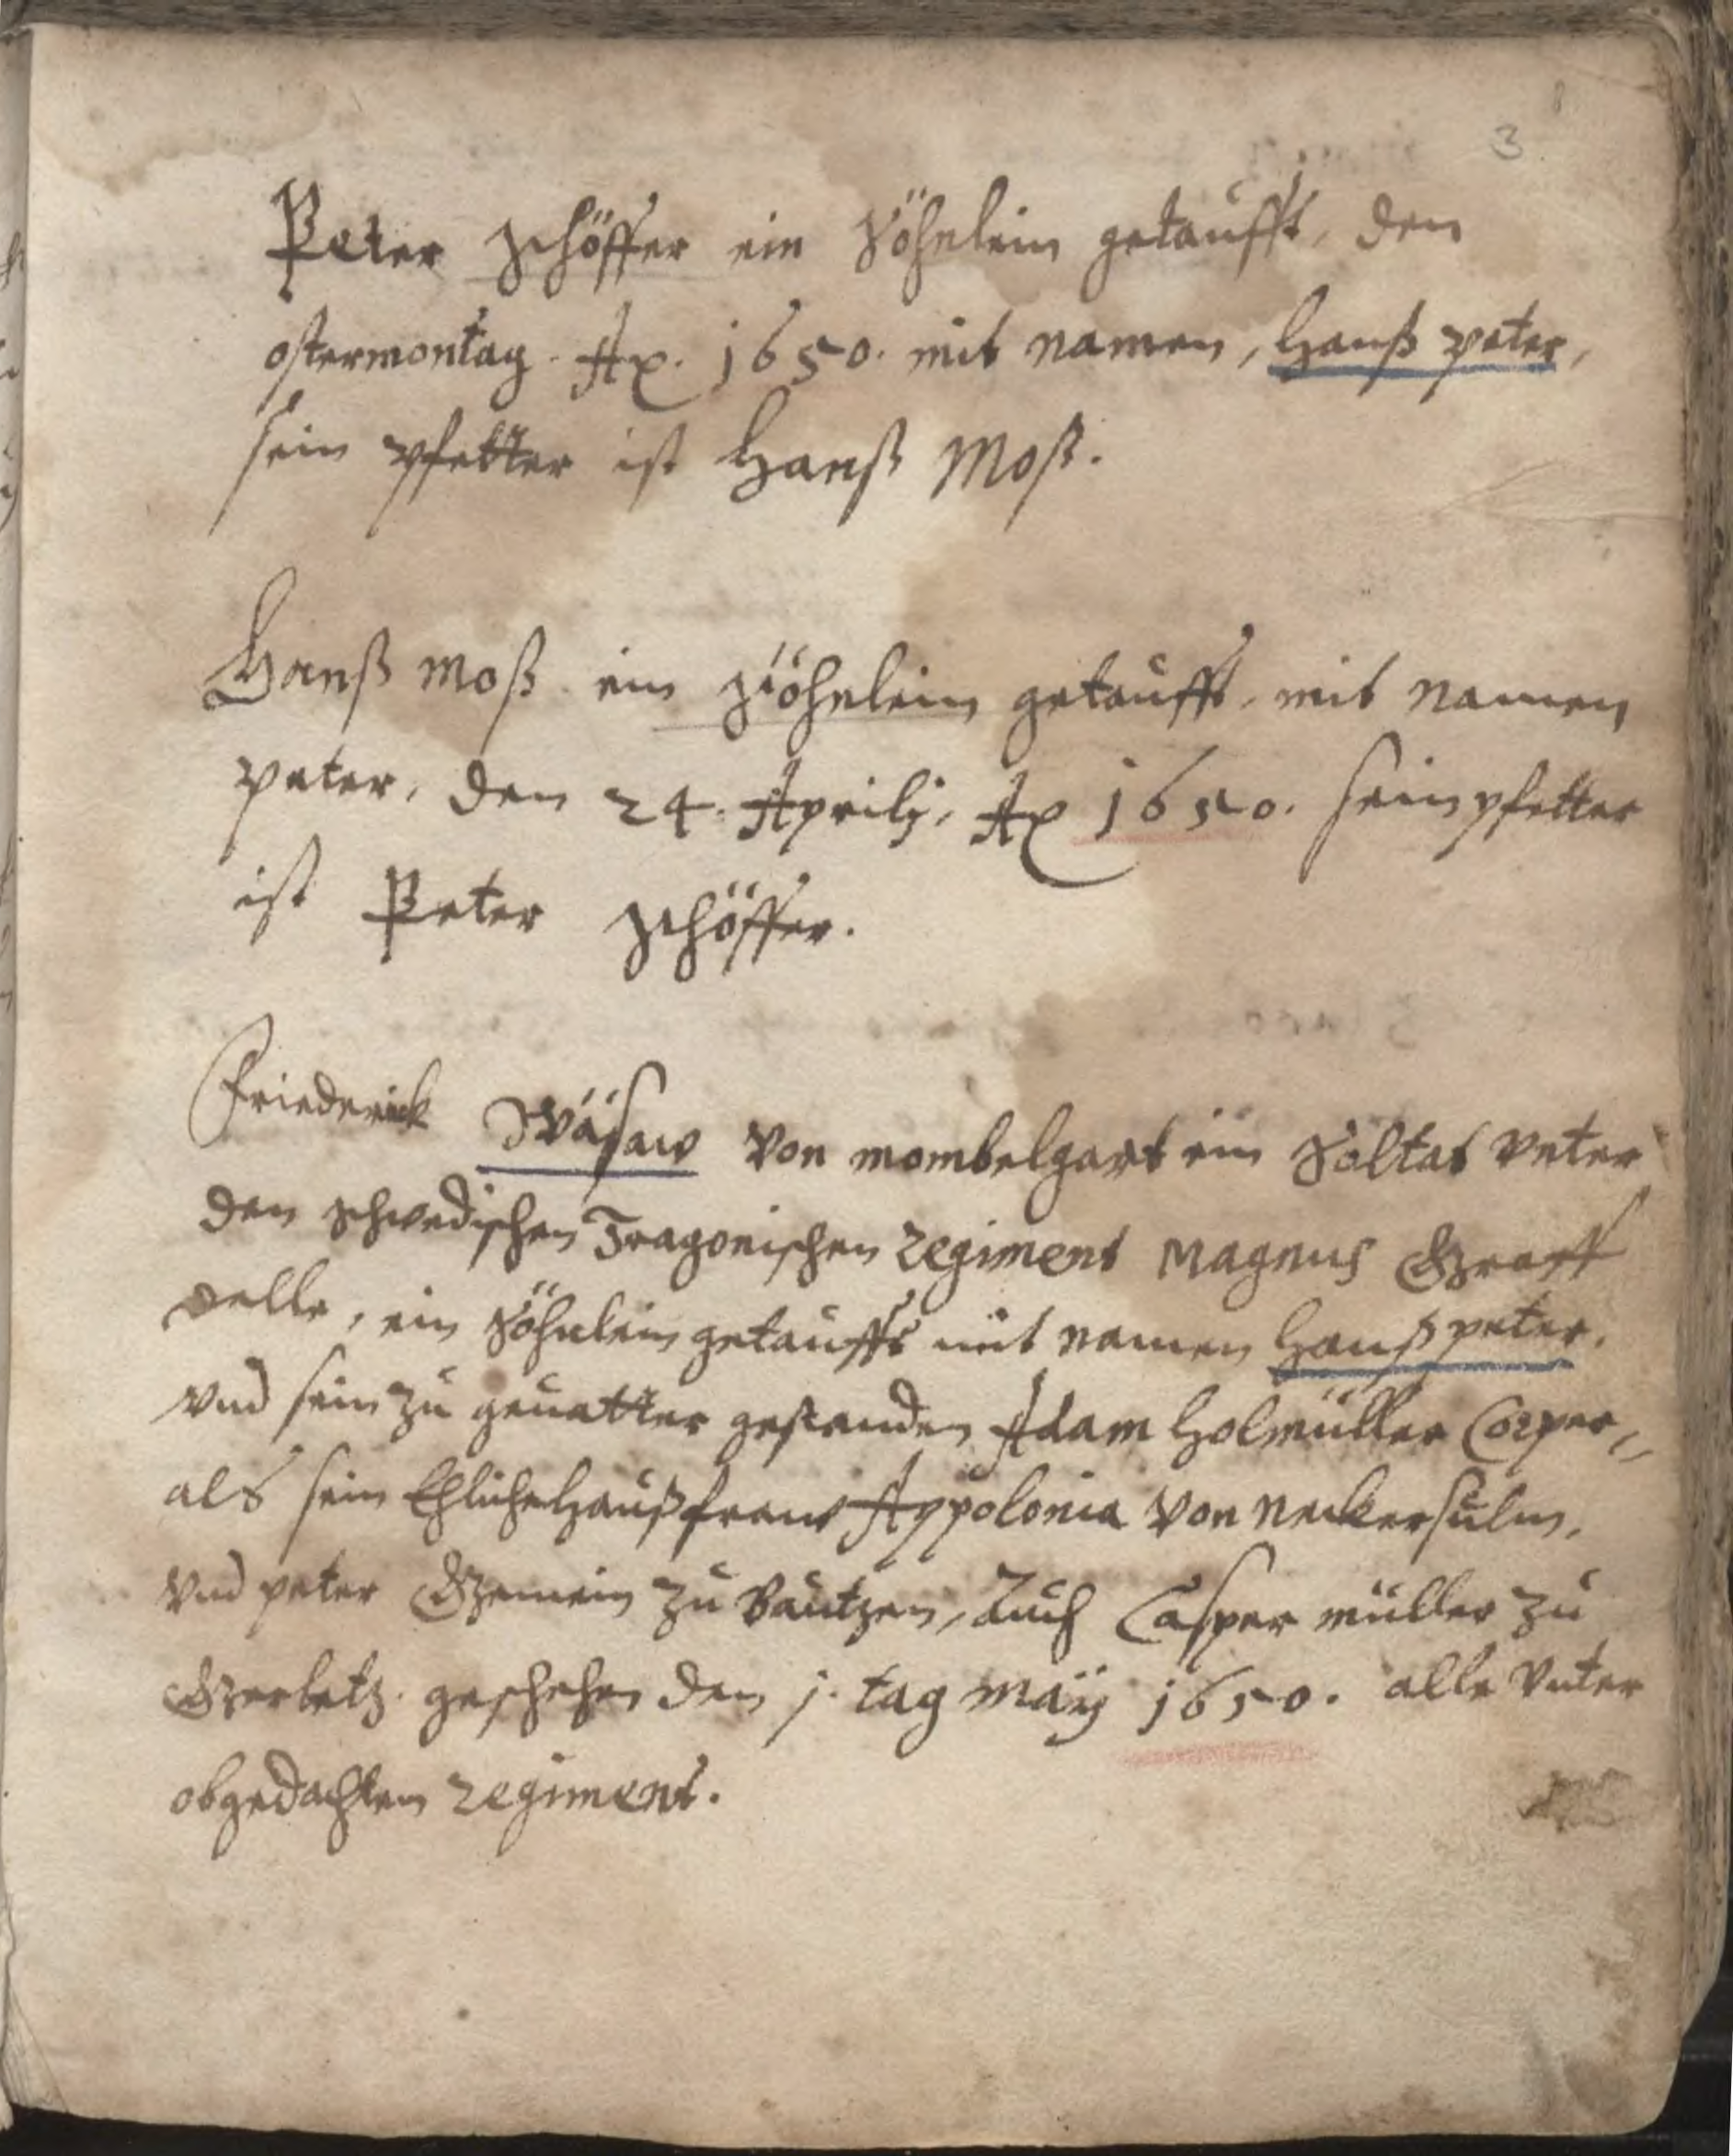 3
Peter Schöffer ein Söhnlein getaufft, den
ostermontag. Ao. 1650. mit namen, Hanß peter,
sein pfetter ist Hanß Moß.
Hanß moß ein Söhnlein getaufft, mit namen
peter, den 24. Aprilj, Ao 1650. sein pfetter
ist Peter Schöffer.
Friederick Wäsaw Von mombelgart ein Soltat vnter
den schwedischen Tragonischen Regiment Magnus Graff
velle, ein Söhnlein getaufft mit namen Hanß peter.
Vnd sein zu gevatter gestanden Adam Holmüller Corper,,
als sein Ehliche Haußfraw Appolonia Von Neckersulm,
Vnd peter Gemein zu Bautzen, Auch Casper müller zu
Gerletz. geschehen den 1. tag maÿ 1650. alle Vnter
obgedachtem Regiment.